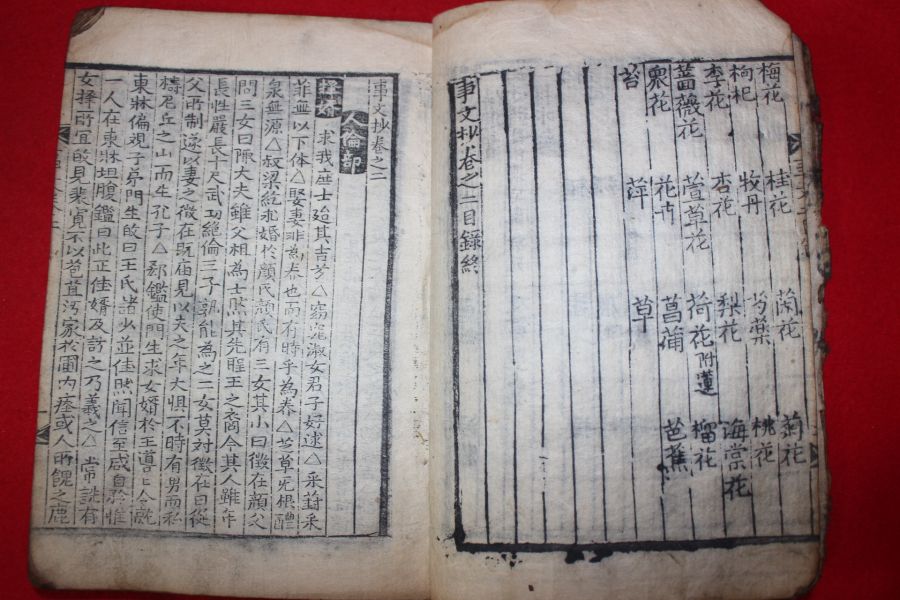 梅花 桂花 蘭花 菊花
枸杞 牧丹 芍藥 桃花
李花 杏花 梨花 海棠花
薔薇花 萱草花 荷花附蓮 榴花
衆花 花卉 菖蒲 芭蕉
苔 萍 草
事文抄卷之二目錄終
事文抄卷之二
人倫部
擇婚 求我庶士迨其吉兮△窈窕淑女君子好逑△采葑采
菲無以下体△娶妻非為養也而有時乎為養△芝草无根醴
泉無源△叔梁紇求婚於顔氏顔氏有三女其小曰徵在顔父
問三女曰陬大夫雖父祖為士然其先聖王之裔今其人雖年
長性嚴長十尺武力絕倫三子孰能為之二女莫對徵在曰從
父所制遂以妻之徵在既庙見以夫之年大懼不時有男而私
禱尼丘之山而生孔子△郗鑑使門生求女婿於王導令就
東牀偏視子弟門生皈曰王氏諸少並佳然聞信至咸自矜惟
一人在東牀坦腹鑑曰此正佳婿及訪之乃羲之△韋詵有
女擇所宜皈見裴寬不以苞苴汚家於圃內瘞或人所餽之鹿